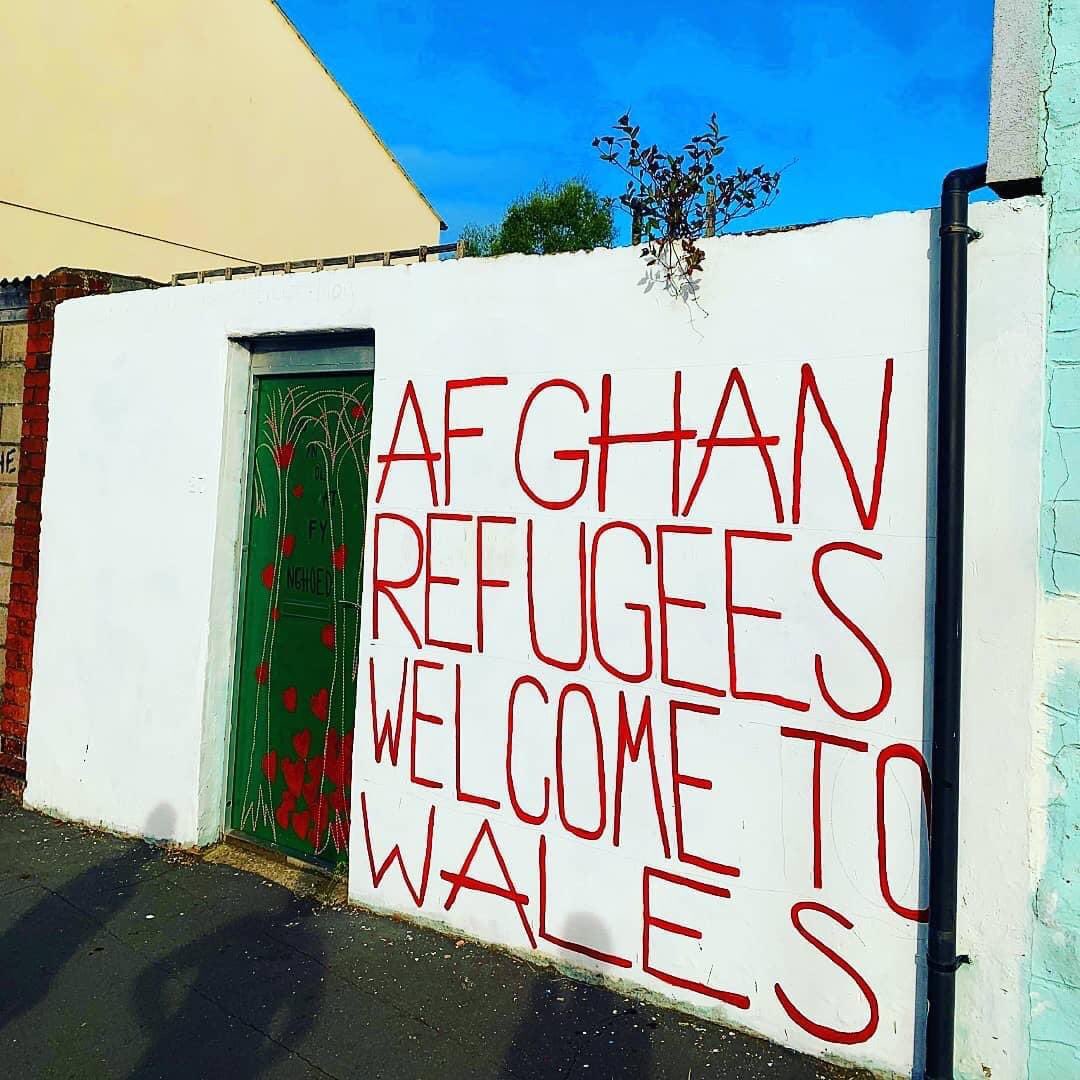 FY
NGHOED
AFGHAN
REFUGEES
WELCOME TO
WALES